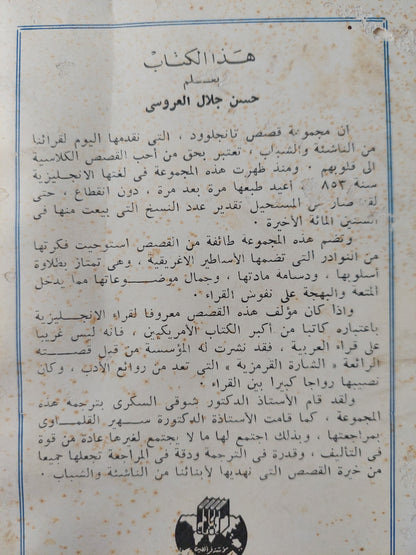 هذا الكتاب
بقلم
حسن جلال العروسى
ان مجموعة قصص تانجلوود ، التى نقدمها اليوم لقرائنا
من الناشئة والشباب ، تعتبر بحق من أحب القصص الكلاسية
الى قلوبهم ٠ ومنذ ظهرت هذه المجموعة فى لغتها الانجليزية
سنة ٨٥٣ أعيد طبعها مرة بعد مرة ، دون انقطاع ، حتى
المستحيل تقدير عدد النسخ التى بيعت منها فى
المائة الأخيرة ٠
وتضم هذه المجموعة طائفة من القصص استوحيت فكرتها
من النوادر التى تضمها الأساطير الاغريقية ، وهى تمتاز بطلاوة
أسلوبها ، ودسامة مادتها ، وجمال موضوعاتها مما يدخل
المتعة والبهجة على نفوش القراء ٠
واذا كان مؤلف هذه القصص معروفا لقراء الانجليزية
باعتباره كاتبا من أكبر الكتاب الأمريكين ، فانه ليس غريبا
على قراء العربية ، فقد نشرت له المؤسسة من قبل قصته
الرائعة « الشارة القرمزية » التى تعد من روائع الأدب ، وكان
نصيبها رواجا كبيرا بين القراء ٠
ولقد قام الأستاذ الدكتور شوقى السكرى بترجمة هذه
المجموعة ، كما قامت الأستاذة الدكتورة سهير القلماوى
بمراجعتها ، وبذلك اجتمع لها ما لا يجتمع لغيرها عادة من قوة
فى التأليف ، وقدرة فى الترجمة ودقة فى المراجعة تجعلها جميعا
من خيرة القصص التى نهديها لأبنائنا من الناشئة والشباب ٠